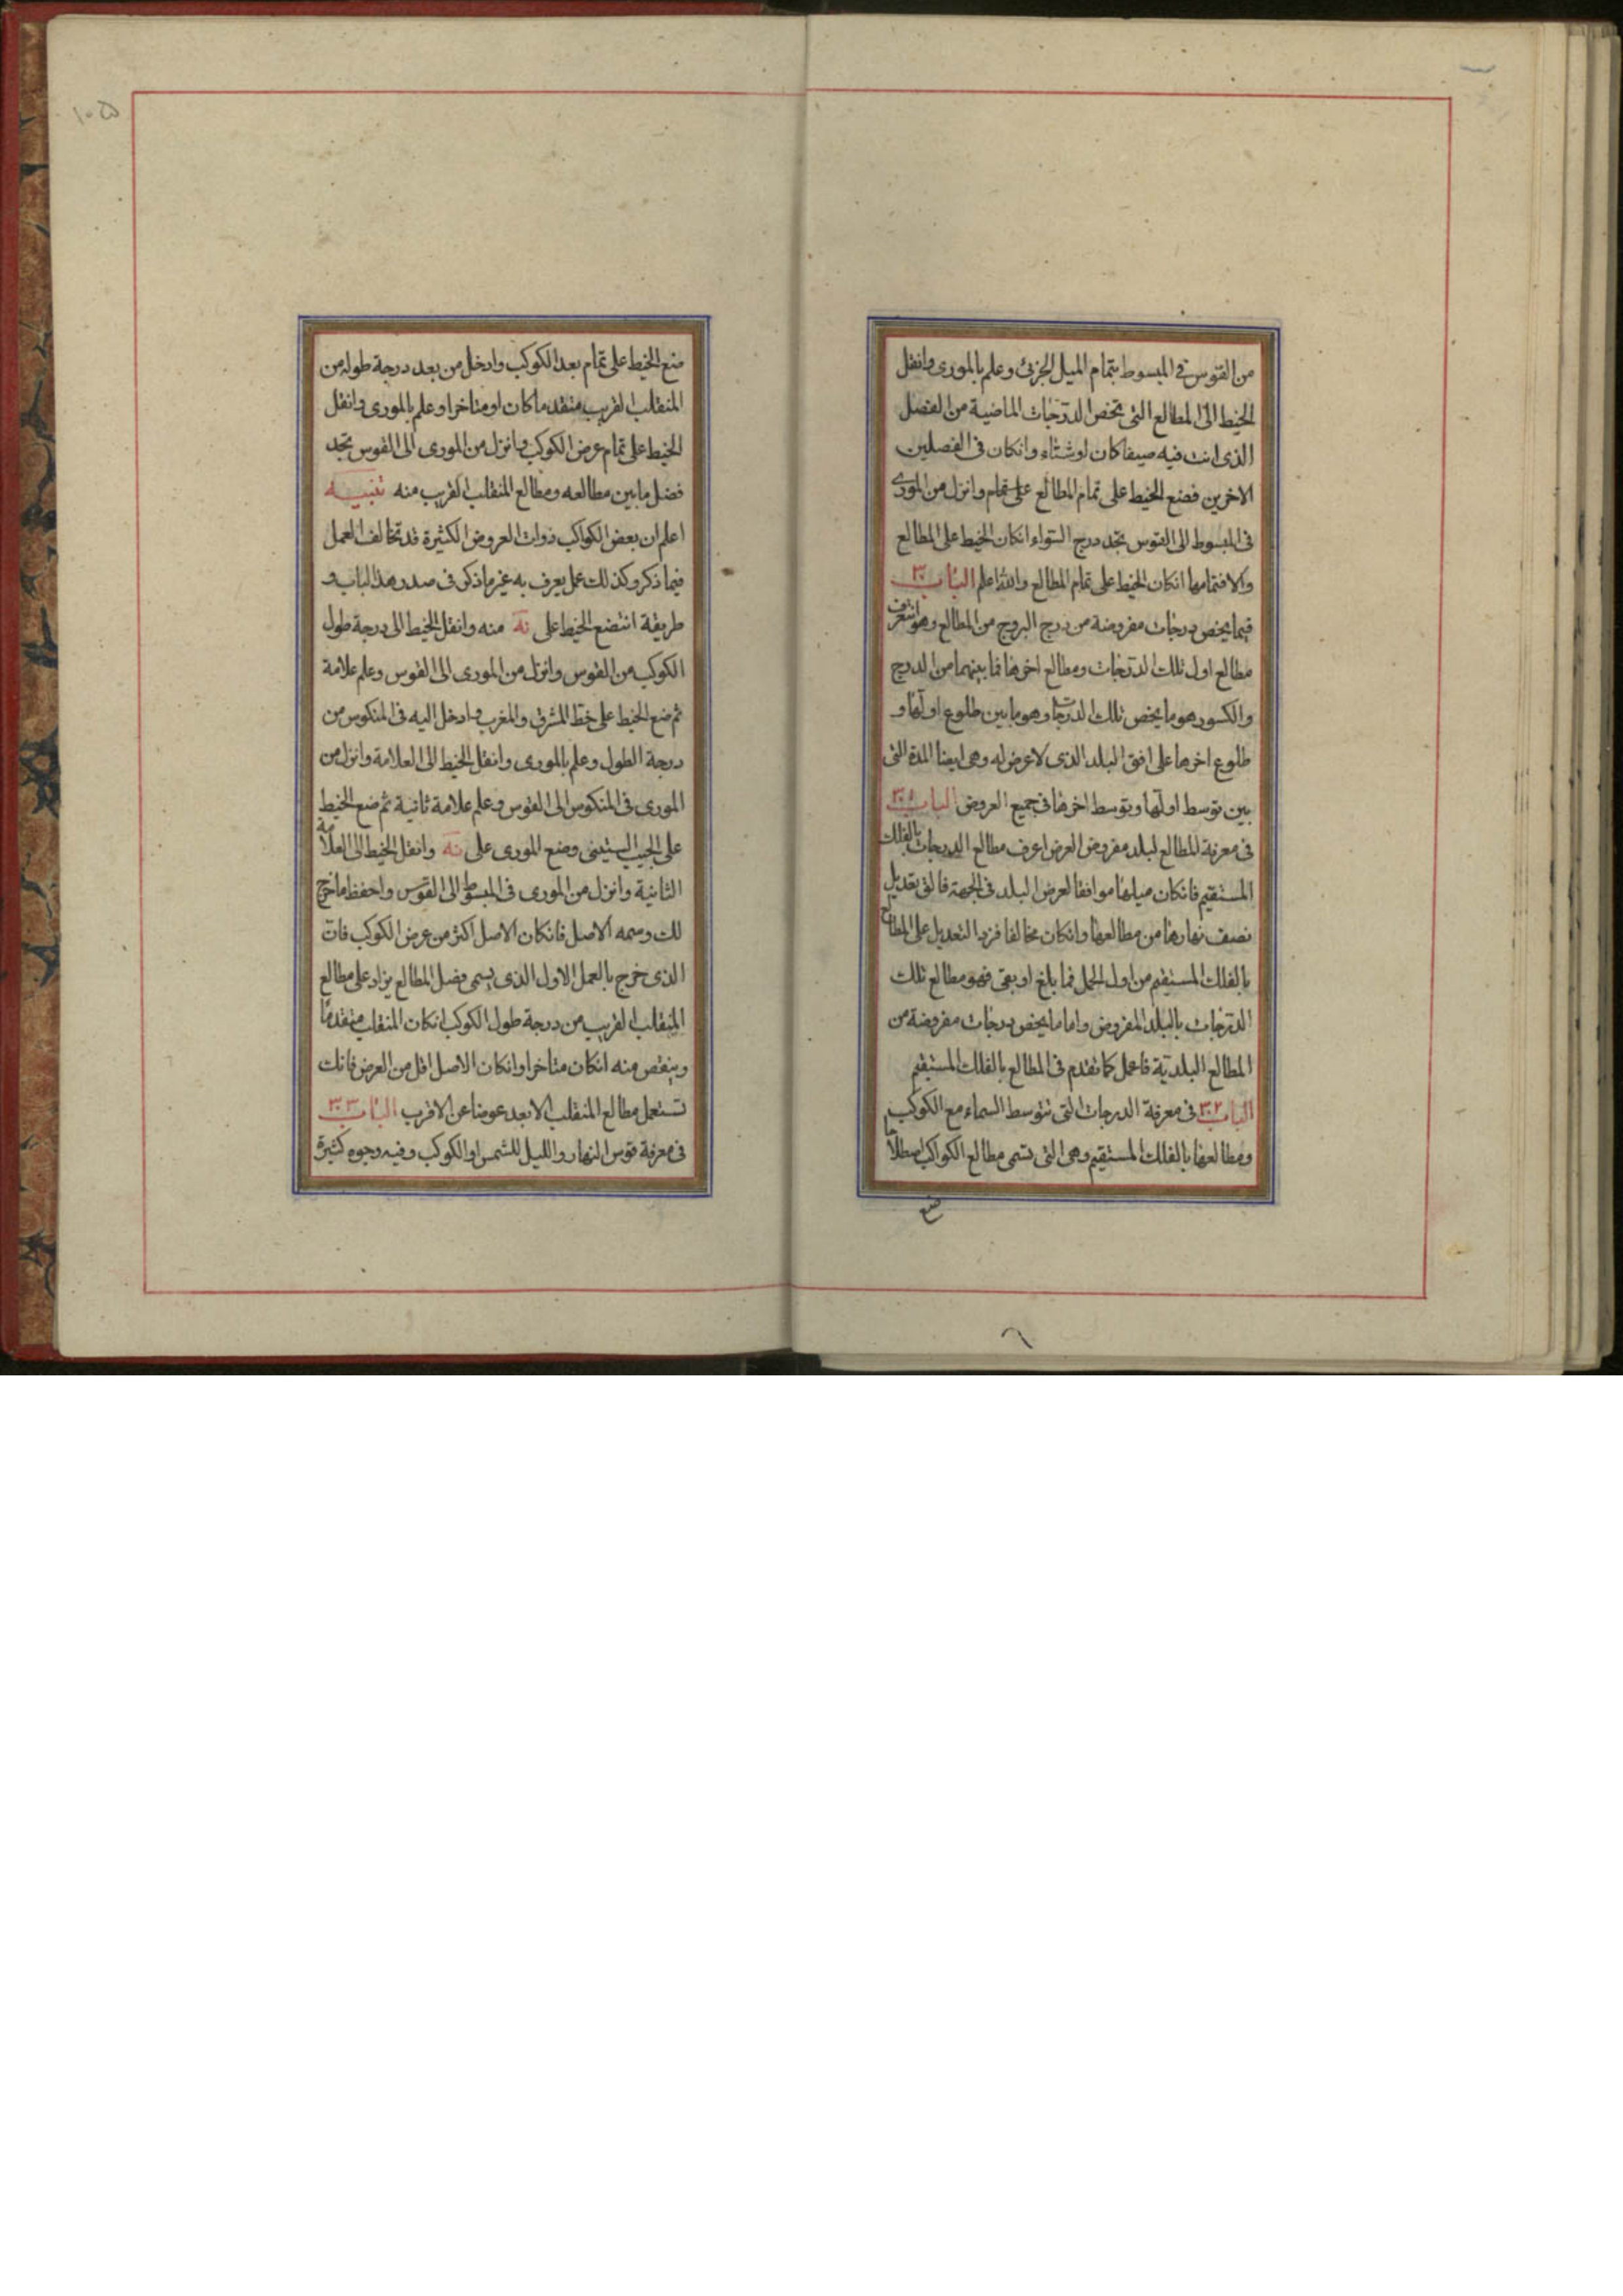 من القوس في المبسوط بتمام الميل الجزئى وعلم بالمورى وانقل
الخيط الى المطالع التى تخص الدرجات الماضية من الفصل
الذى انت فيه صيفا كان او شتاء وانكان فى الفصلين
الاخرين فضع الخيط على تمام المطالع على تمام وانزل من المورى
فى المبسوط الى القوس تجد درج السواء انكان الخيط على المطالع
والا فتمامها انكان الخيط على تمام المطالع والله اعلم الباب ٣٠
فيما يخص درجات مفروضة من درج البروج من المطالع وهو ان تعرف
مطالع اول تلك الدرجات ومطالع اخرها فما بينهما من الدرج
والكسور هو ما يخص تلك الدرجات وهو ما بين طلوع اولها و
طلوع اخرها على افق البلد الذى لا عرض له وهى ايضا المدة التى
بين توسط اولها وتوسط اخرها فى جميع العروض الباب ٣٠١
فى معرفة المطالع لبلد مفروض العرض اعرف مطالع الدرجات بالفلك
المستقيم فانكان ميلها موافقا لعرض البلد فى الجهة فالق تعديل
نصف نهارها من مطالعها وانكان مخالفا فزد التعديل على المطالع
بالفلك المستقيم من اول الحمل فما بلغ او بقى فهو مطالع تلك
الدرجات بالبلد المفروض واما ما يخص درجات مفروضة من
المطالع البلدية فاعمل كما تقدم فى المطالع بالفلك المستقيم
الباب ٣٠٢ فى معرفة الدرجات التى تتوسط السماء مع الكوكب
ومطالعها بالفلك المستقيم وهى التى تسمى مطالع الكواكب اصطلاحا
ضع
١٠٥
ضع الخيط على تمام بعد الكوكب وادخل من بعد درجة طوله من
المنقلب القريب متقدما كان او متاخرا وعلم بالمورى وانقل
الخيط على تمام عرض الكوكب وانزل من المورى الى القوس تجد
فضل ما بين مطالعه ومطالع المنقلب القريب منه تنبيه
اعلم ان بعض الكواكب ذوات العروض الكثيرة قد تخالف العمل
فيما ذكر وكذلك عمل يعرف به غير ما ذكر فى صدر هذا الباب و
طريقة ان تضع الخيط على نه منه وانقل الخيط الى درجة طول
الكوكب من القوس وانزل من المورى الى القوس وعلم علامة
ثم ضع الخيط على خط المشرق والمغرب وادخل اليه فى المنكوس من
درجة الطول وعلم بالمورى وانقل الخيط الى العلامة وانزل من
المورى فى المنكوس الى القوس وعلم علامة ثانية ثم ضع الخيط
على الجيب الستينى وضع المورى على نه وانقل الخيط الى العلامة
الثانية وانزل من المورى فى المبسوط الى القوس واحفظ ما خرج
لك وسمه الاصل فانكان الاصل اكثر من عرض الكوكب فان
الذى خرج بالعمل الاول الذى يسمى فضل المطالع يزاد على مطالع
المنقلب القريب من درجة طول الكوكب انكان المنقلب متقدما
وينقص منه انكان متاخرا وانكان الاصل اقل من العرض فانك
تستعمل مطالع المنقلب الابعد عوضا عن الاقرب الباب ٣٠٣
فى معرفة قوس النهار والليل للشمس او الكوكب وفيه وجوه كثيرة